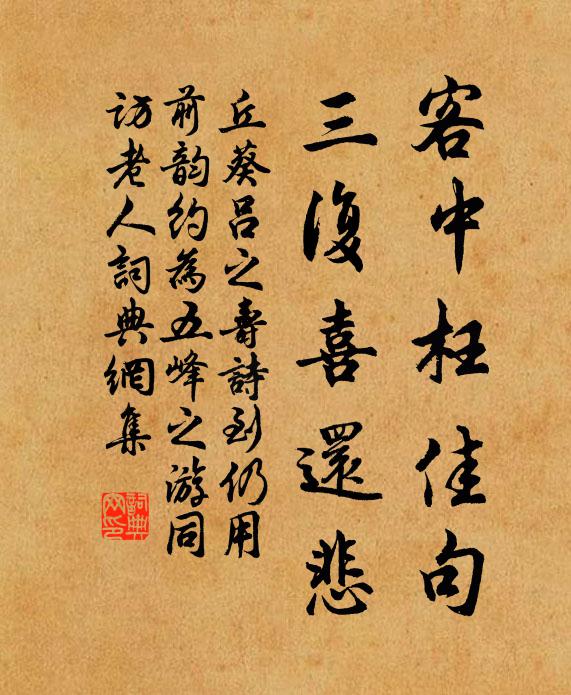 客中枉佳句
三復喜還悲
丘葵呂之壽詩到仍用
前韵約為五峰之游同
訪老人詞典網集
詞典
網印